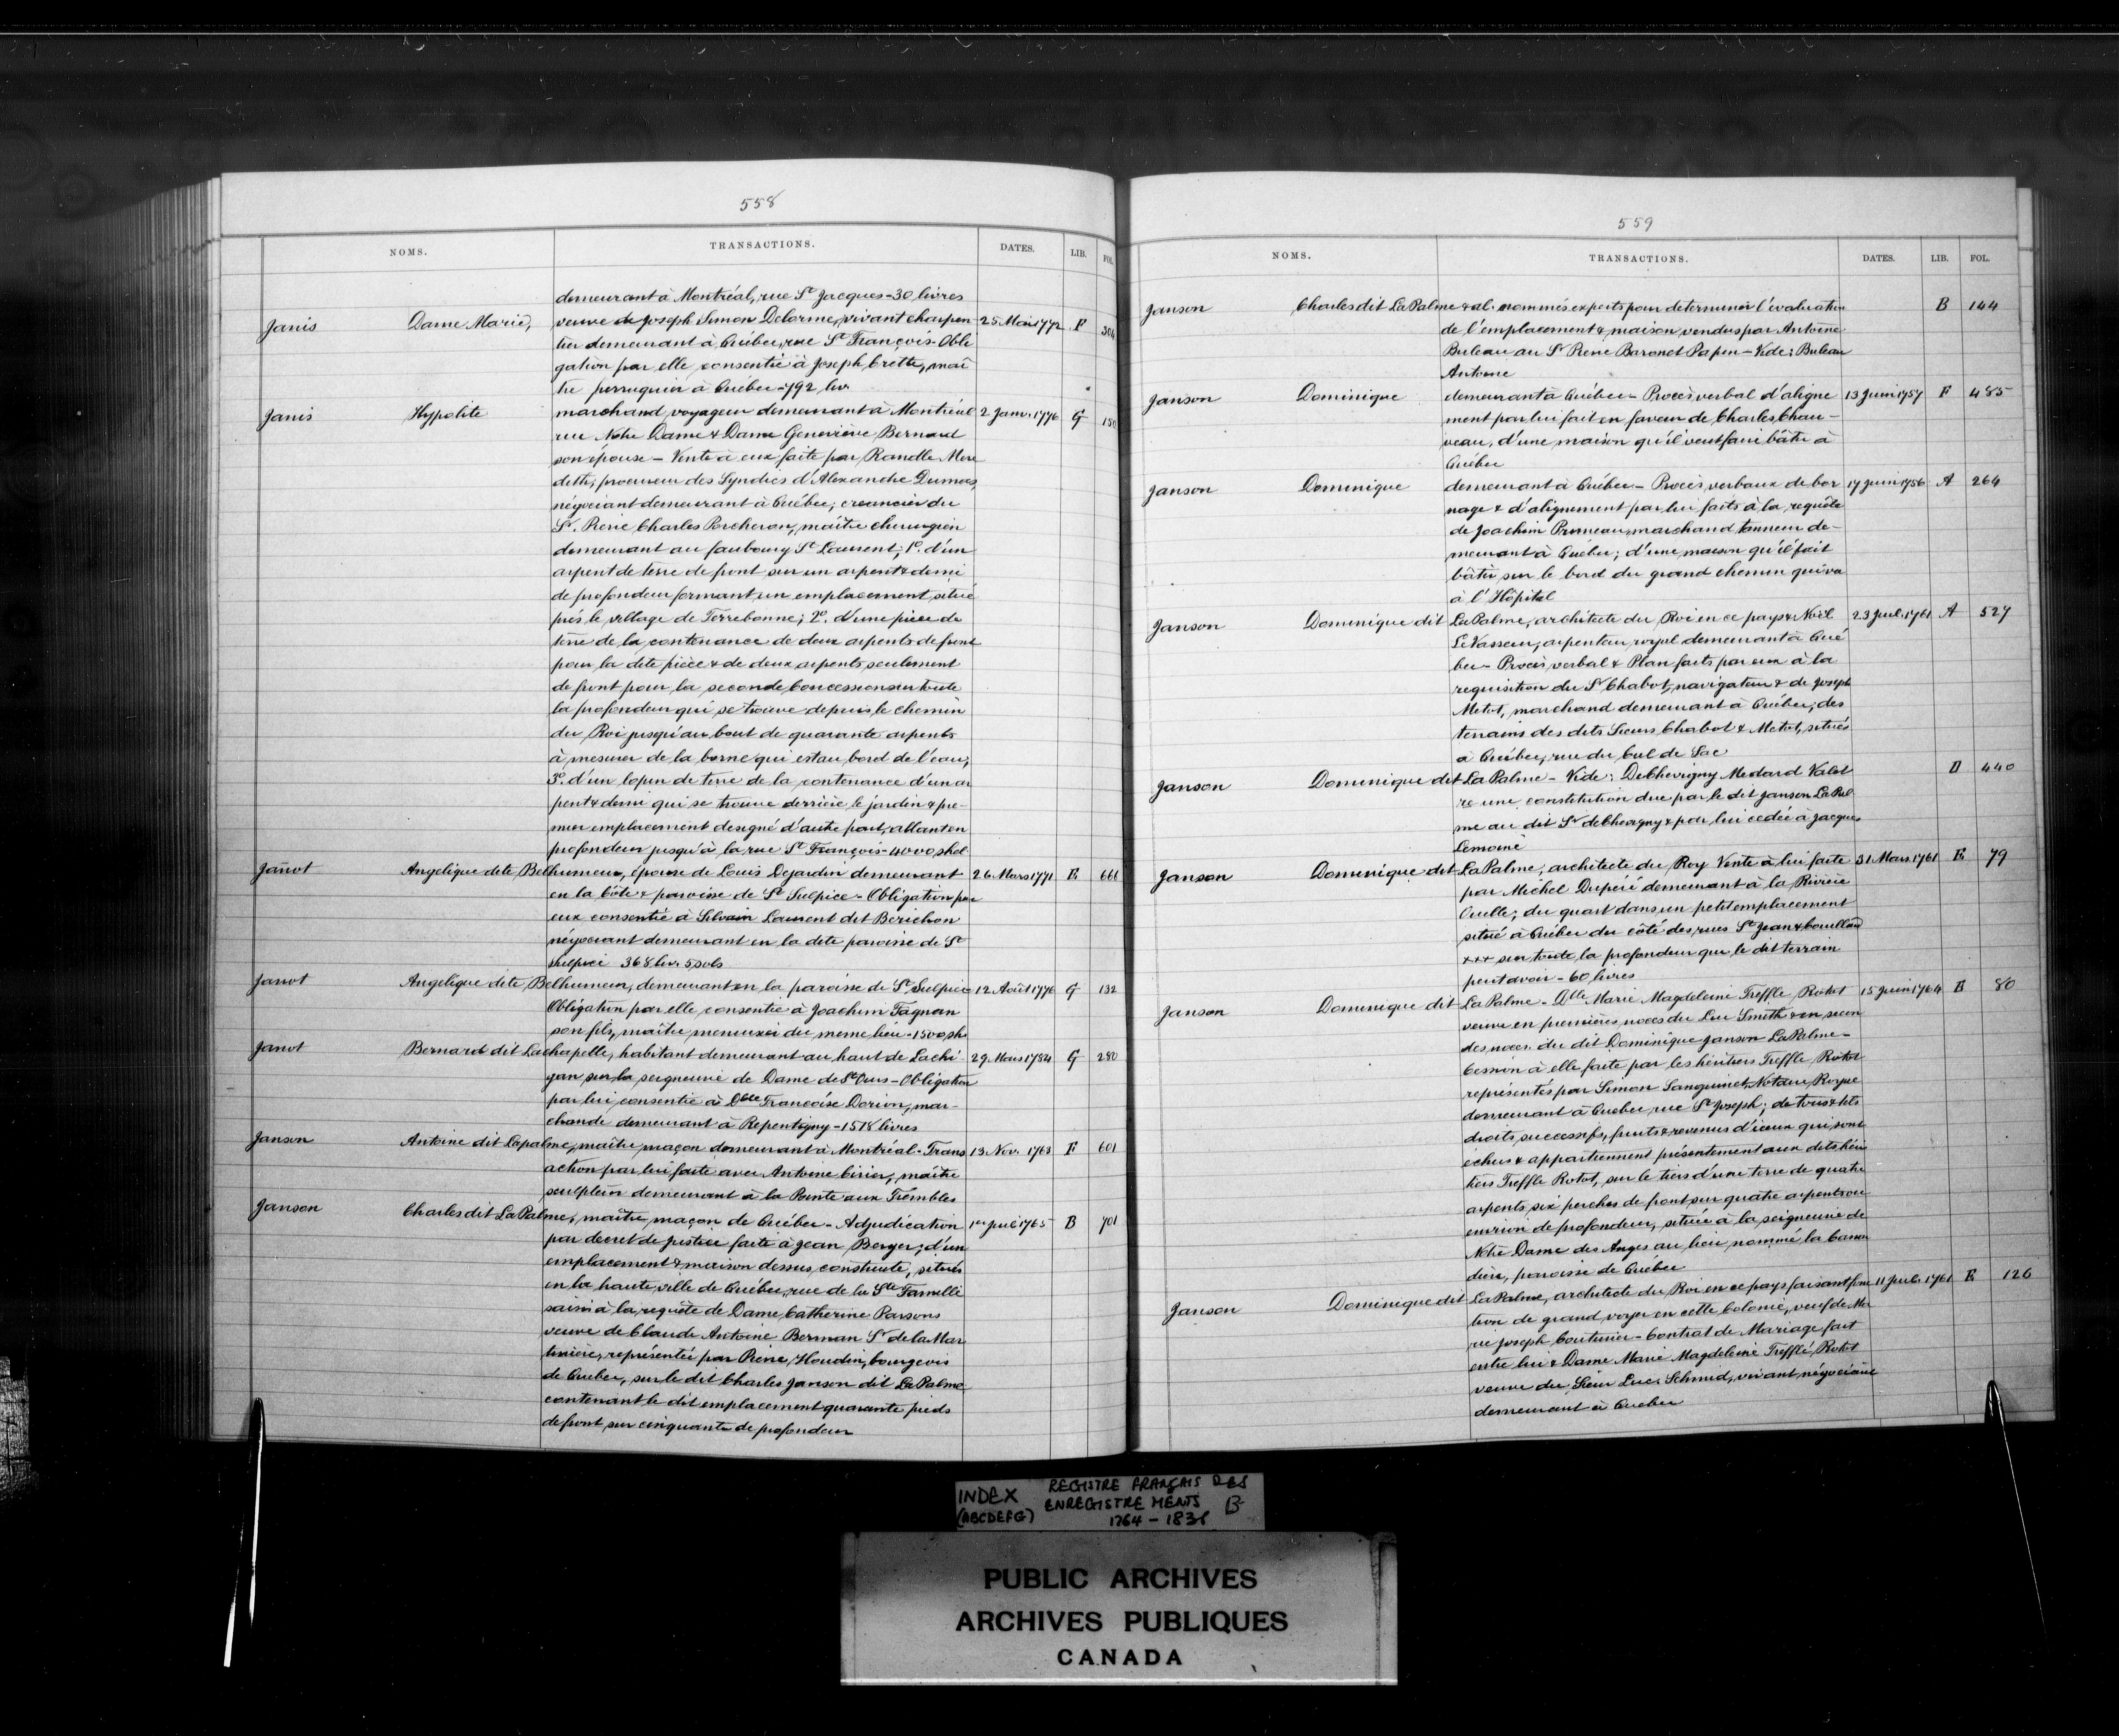 558
NOMS. TRANSACTIONS. DATES. LIB. FOL.
demeurant à Montréal, rue St Jacques - 30 livres
Janis Dame Marie, veuve de Joseph Simon Delorme, vivant charpen 25 Mai 1772 F 304
tier demeurant à Québec, rue St François - Obli
gation par elle consentie à Joseph Crette, maî
tre perruquier à Québec - 792 liv.
Janis Hypolite marchand voyageur demeurant à Montréal 2 Janv. 1776 G 150
rue Notre Dame & Dame Geneviève Bernard
son épouse - Vente à eux faite par Randle Mere
dith, procureur des Syndics d'Alexandre Dumas,
négociant demeurant à Québec, creancier du
Sr. Pierre Charles Porcheron, maître chirurgien
demeurant au faubourg St Laurent; 1o. d'un
arpent de terre de front sur un arpent & demi
de profondeur formant un emplacement situé
près le village de Terrebonne; 2o. d'une pièce de
terre de la contenance de deux arpents de front
pour la dite pièce & de deux arpents seulement
de front pour la seconde Concession sur toute
la profondeur qui se trouve depuis le chemin
du Roi jusqu'au bout de quarante arpents
à mesurer de la borne qui est au bord de l'eau;
3o. d'un lopin de terre de la contenance d'un ar
pent & demi qui se trouve derrière le jardin & pre-
mier emplacement designé d'autre part, allant en
profondeur jusqu'à la rue St François - 4000 shel.
Janot Angelique dite Belhumeur, épouse de Louis Dejardin demeurant 26 Mars 1771 E 661
en la Côte & paroisse de St Sulpice - Obligation par
eux consentie à Silvain Laurent dit Berichon
négociant demeurant en la dite paroisse de St
Sulpice 368 liv. 5 sols
Janot Angelique dite Belhumeur, demeurant en la paroisse de St Sulpice 12 Août 1776 G 132
Obligation par elle consentie à Joachim Fagnan
son fils, maître menuisier du meme lieu - 1500 sh.
Janot Bernard dit Lachapelle, habitant demeurant au haut de Lachi 29 Mars 1784 G 280
gan sur la seigneurie de Dame de St Ours - Obligation
par lui consentie à Dlle Francoise Dorion, mar-
chande demeurant à Repentigny - 1518 livres
Janson Antoine dit Lapalme, maître maçon demeurant à Montréal - Trans 13 Nov. 1768 F 601
action par lui faite avec Antoine Cirier, maître
sculpteur demeurant à la Pointe aux Trembles
Janson Charles dit LaPalme, maître maçon de Québec - Adjudication 1er juil 1765 B 701
par decret de Justice faite à Jean Berger; d'un
emplacement & maison dessus construite, situés
en la haute ville de Québec, rue de la Ste Famille
saisi à la requête de Dame Catherine Parsons
veuve de Claude Antoine Berman Sr de la Mar
tinière, représentée par Pierre Houdin, bourgeois
de Quebec, sur le dit Charles Janson dit LaPalme
contenant le dit emplacement quarante pieds
de front sur cinquante de profondeur
559
NOMS. TRANSACTIONS. DATES. LIB. FOL.
Janson Charles dit LaPalme & al. nommés experts pour determiner l'évaluation B 144
de l'emplacement & maison vendus par Antoine
Buleau au Sr Pierre Baronet Papin - Vide: Buleau
Antoine
Janson Dominique demeurant à Québec - Procès verbal d'aligne 13 Juin 1757 F 485
ment par lui fait en faveur de Charles Chau-
veau, d'une maison qu'il veut faire bâtir à
Québec
Janson Dominique demeurant à Québec - Procès verbaux de bor 17 juin 1756 A 264
nage & d'alignement par lui faits à la requête
de Joachim Primeau, marchand tanneur de-
meurant à Québec; d'une maison qu'il fait
bâtir sur le bord du grand chemin qui va
à l'Hôpital
Janson Dominique dit LaPalme, architecte du Roi en ce pays & Noël 23 Juil. 1761 A 527
LeVasseur, arpenteur royal demeurant à Qué
bec - Procès verbal & Plan faits par eux à la
requisition du Sr Chabot, navigateur & de Joseph
Metot, marchand demeurant à Québec; des
terrains des dits Sieurs Chabot & Metot, situés
à Québec, rue du Cul de Sac
Janson Dominique dit LaPalme - Vide: DeChevigny Medard Valet D 440
re une constitution due par le dit Janson LaPal
me au dit Sr deChevigny & par lui cédée à Jacques
Lemoine
Janson Dominique dit LaPalme, architecte du Roy Vente à lui faite 31 Mars 1761 E 79
par Michel Dupéré demeurant à la Rivière
Ouelle; du quart dans un petit emplacement
situé à Québec du côté des rues St Jean & Couillard
+++ sur toute la profondeur que le dit terrain
peut avoir - 60 livres
Janson Dominique dit LaPalme - Dlle Marie Magdeleine Treffle Rotot 15 Juin 1764 E 80
veuve en premières noces du Luc Smith & en secon
des noces du dit Dominique Janson LaPalme -
Cession à elle faite par les héritiers Treffle Rotot
représentés par Simon Sanguinet, Notaire Royal
demeurant à Quebec rue St Joseph; de tous & tels
droits successifs, fruits & revenus d'iceux qui sont
echus & appartiennent présentement aux dits héri
tiers Treffle Rotot, sur le tiers d'une terre de quatre
arpents six perches de front sur quatre arpents ou
environ de profondeur, située à la seigneurie de
Notre Dame des Anges au lieu nommé la Canar
dière, paroisse de Québec
Janson Dominique dit LaPalme, architecte du Roi en ce pays faisant fonc 11 Juil. 1761 E 126
tion de grand voyer en cette Colonie, veuf de Ma
rie Joseph Couturier - Contrat de Mariage fait
entre lui & Dame Marie Magdeleine Trefflé Rotot
veuve du Sieur Luc Schmid, vivant négociant
demeurant à Quebec
INDEX (ABCDEFG) REGISTRE FRANÇAIS DES ENREGISTREMENTS B
1764 - 1838
PUBLIC ARCHIVES
ARCHIVES PUBLIQUES
CANADA